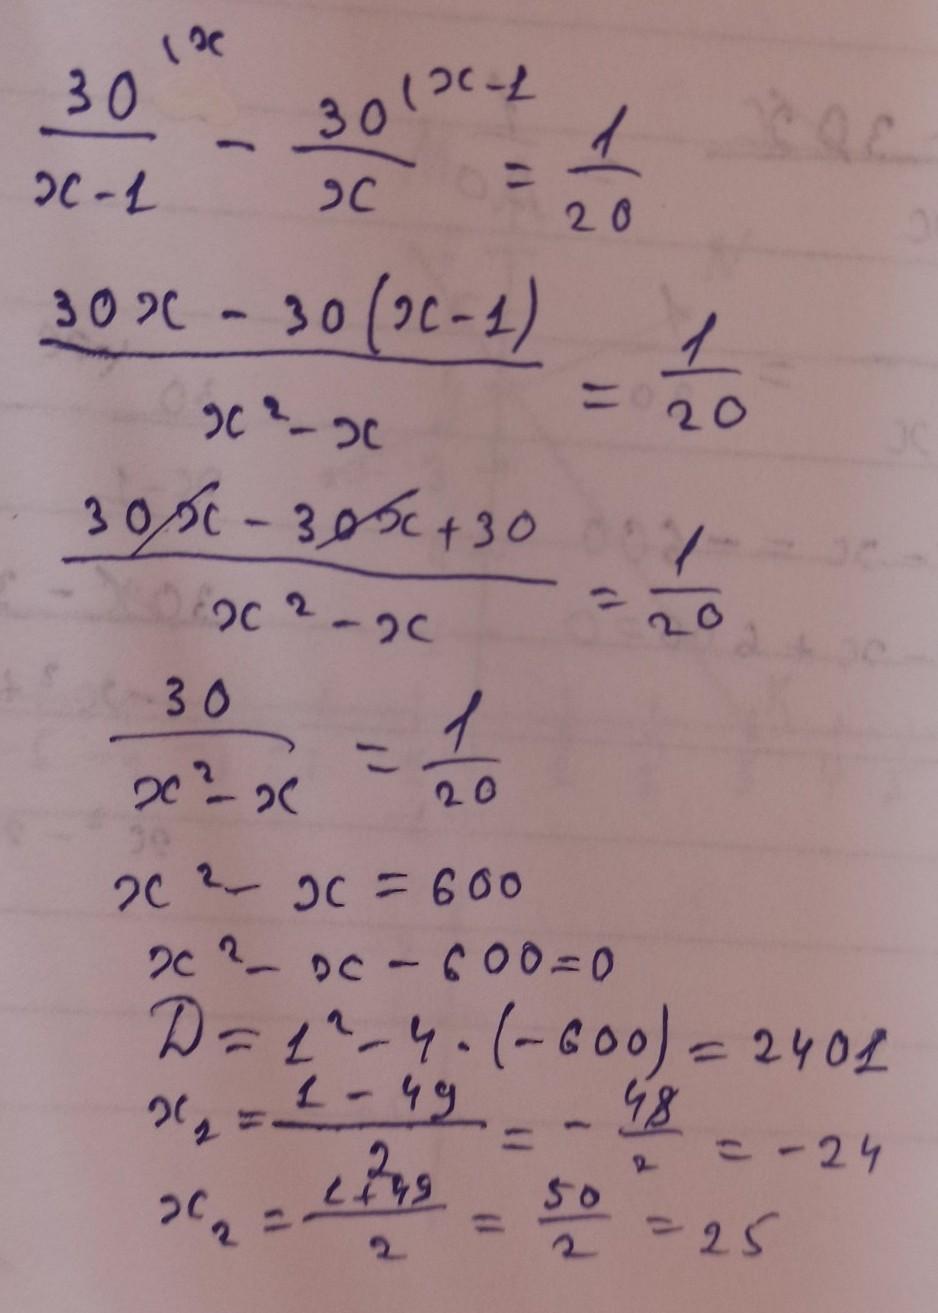 30^(x/(x-1) - 30^(x-1/x = 1/20
(30x - 30(x-1))/(x² - x) = 1/20
(30x - 30x + 30)/(x² - x) = 1/20
30/(x² - x) = 1/20
x² - x = 600
x² - x - 600 = 0
D = 1² - 4 · (-600) = 2401
x₁ = (1 - 49)/2 = - 48/2 = -24
x₂ = (1 + 49)/2 = 50/2 = 25